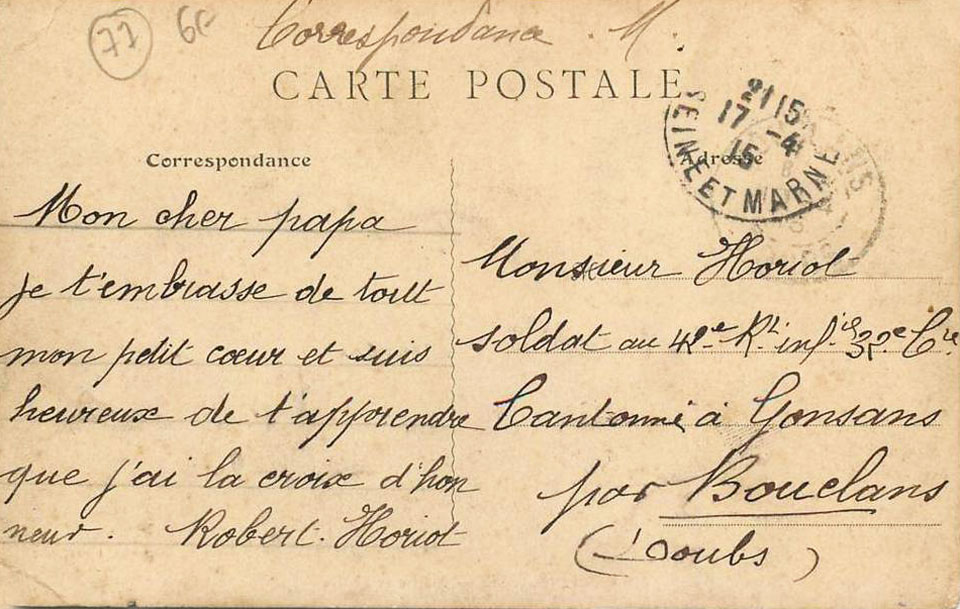 77 6F
Correspondance . M .
CARTE POSTALE
21 15
17 -4
15
SEINE ET MARNE
Correspondance
Adresse
Mon cher papa
je t'embrasse de tout
mon petit cœur et suis
heureux de t'apprendre
que j'ai la croix d'hon
neur. Robert. Horiot
Monsieur Horiot
soldat au 42e Rt. infie 32e Cie
Cantonné à Gonsans
par Bouclans
(Doubs)